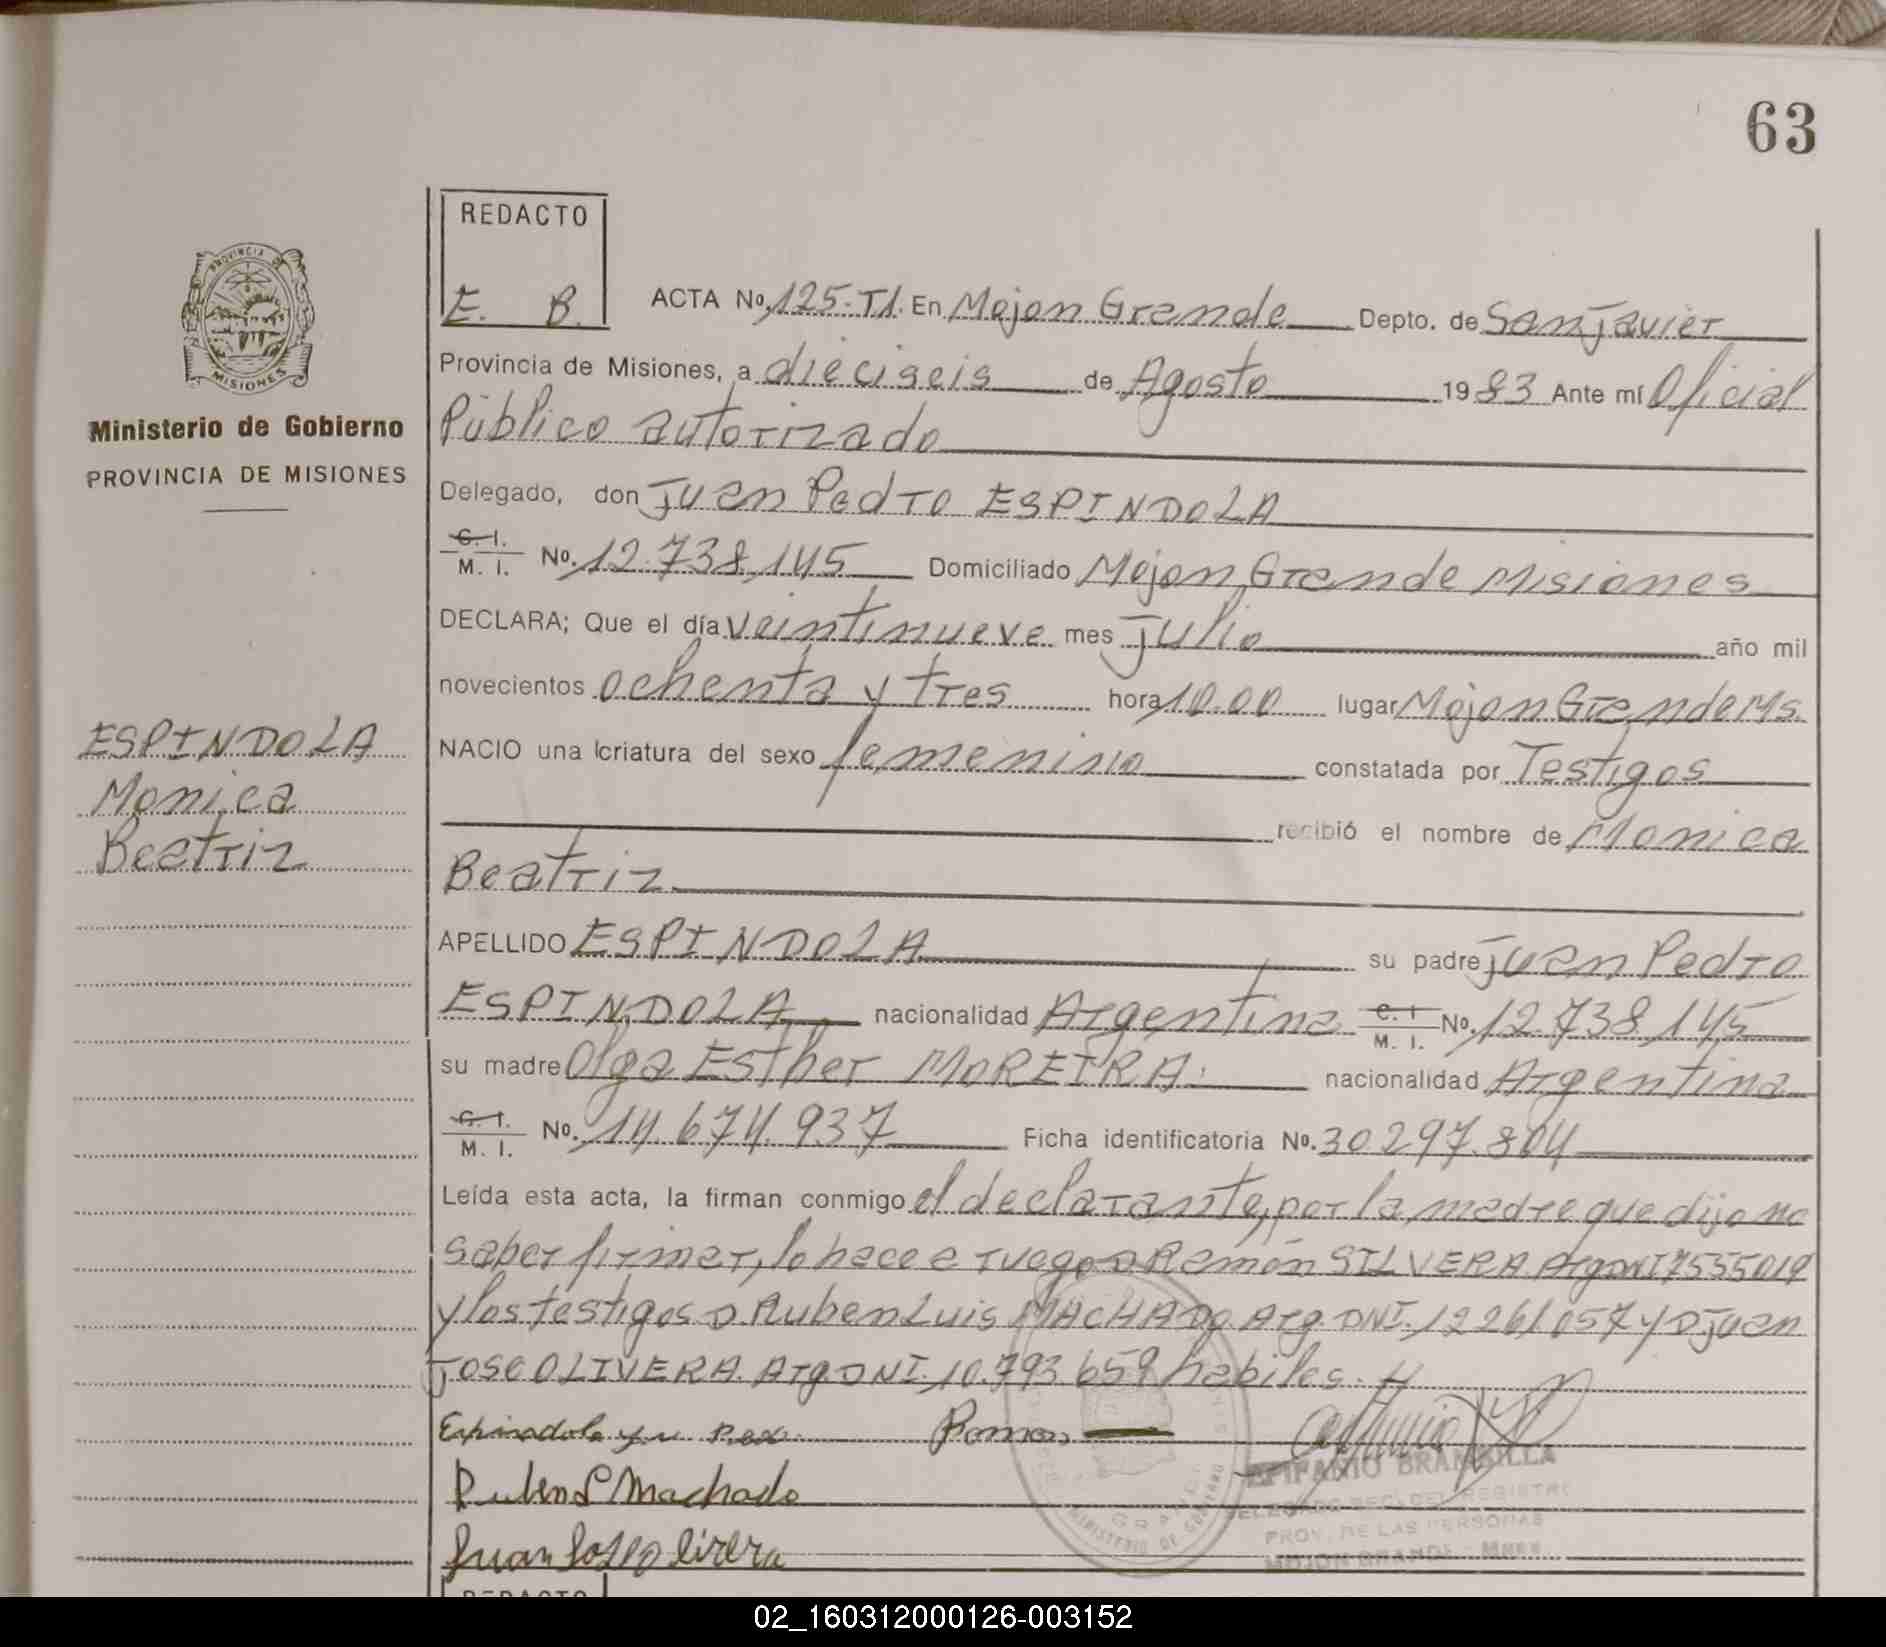 63
REDACTO
E. B.
PROVINCIA DE
MISIONES
Ministerio de Gobierno
PROVINCIA DE MISIONES
ESPINDOLA
Monica
Beatriz
ACTA Nº 125-T1. En Mojon Grande Depto. de San Javier
Provincia de Misiones, a dieciseis de Agosto 1983 Ante mí Oficial
Público autorizado
Delegado, don Juan Pedro ESPINDOLA
C. I. M. I. Nº. 12.738.145 Domiciliado Mojon Grande Misiones
DECLARA; Que el día veintinueve mes Julio año mil
novecientos ochenta y tres hora 10.00 lugar Mojon Grande Ms.
NACIO una criatura del sexo femenino constatada por Testigos
recibió el nombre de Monica
Beatriz
APELLIDO ESPINDOLA su padre Juan Pedro
ESPINDOLA nacionalidad Argentina C. I. M. I. Nº. 12.738.145
su madre Olga Esther MOREIRA. nacionalidad Argentina
C. I. M. I. Nº. 14.674.937 Ficha identificatoria Nº. 30297.804
Leída esta acta, la firman conmigo el declarante, por la madre que dijo no
saber firmar, lo hace a ruego D Ramón SILVERA Arg DNI 7555019
y los testigos D. Ruben Luis MACHADO Arg. DNI. 12261057 y D. Juan
JOSE OLIVERA. Arg DNI. 10.793.659 habiles.
Espindola Ramon
Ruben L Machado
Juan Jose Olivera
MINISTERIO DE GOBIERNO
EPIFANIO BRAMBILLA
DELEGADO REG. DEL REGISTRO
PROV. DE LAS PERSONAS
MOJON GRANDE - Mnes
REDACTO
02_160312000126-003152